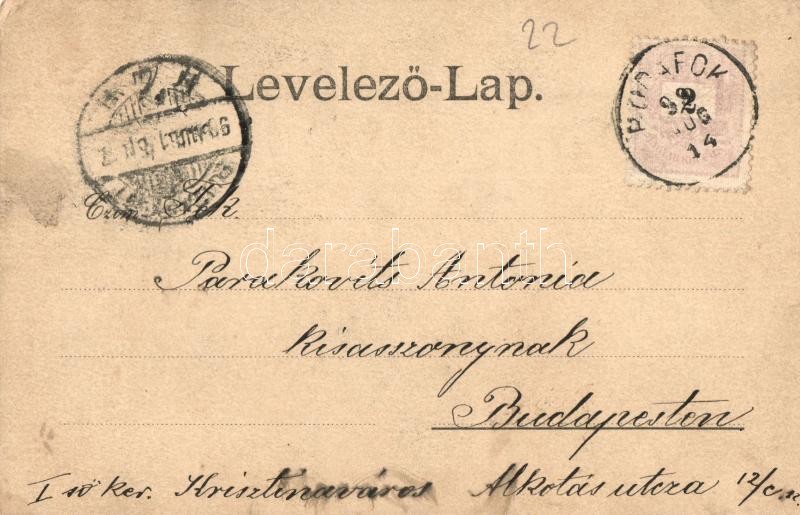 22
Levelező-Lap.
BUDAFOK
Czim Tek.
Parakovits Antonia
kisasszonynak
Budapesten
I ső ker. Krisztinaváros Alkotás utcza 12/c sz.
darabanth